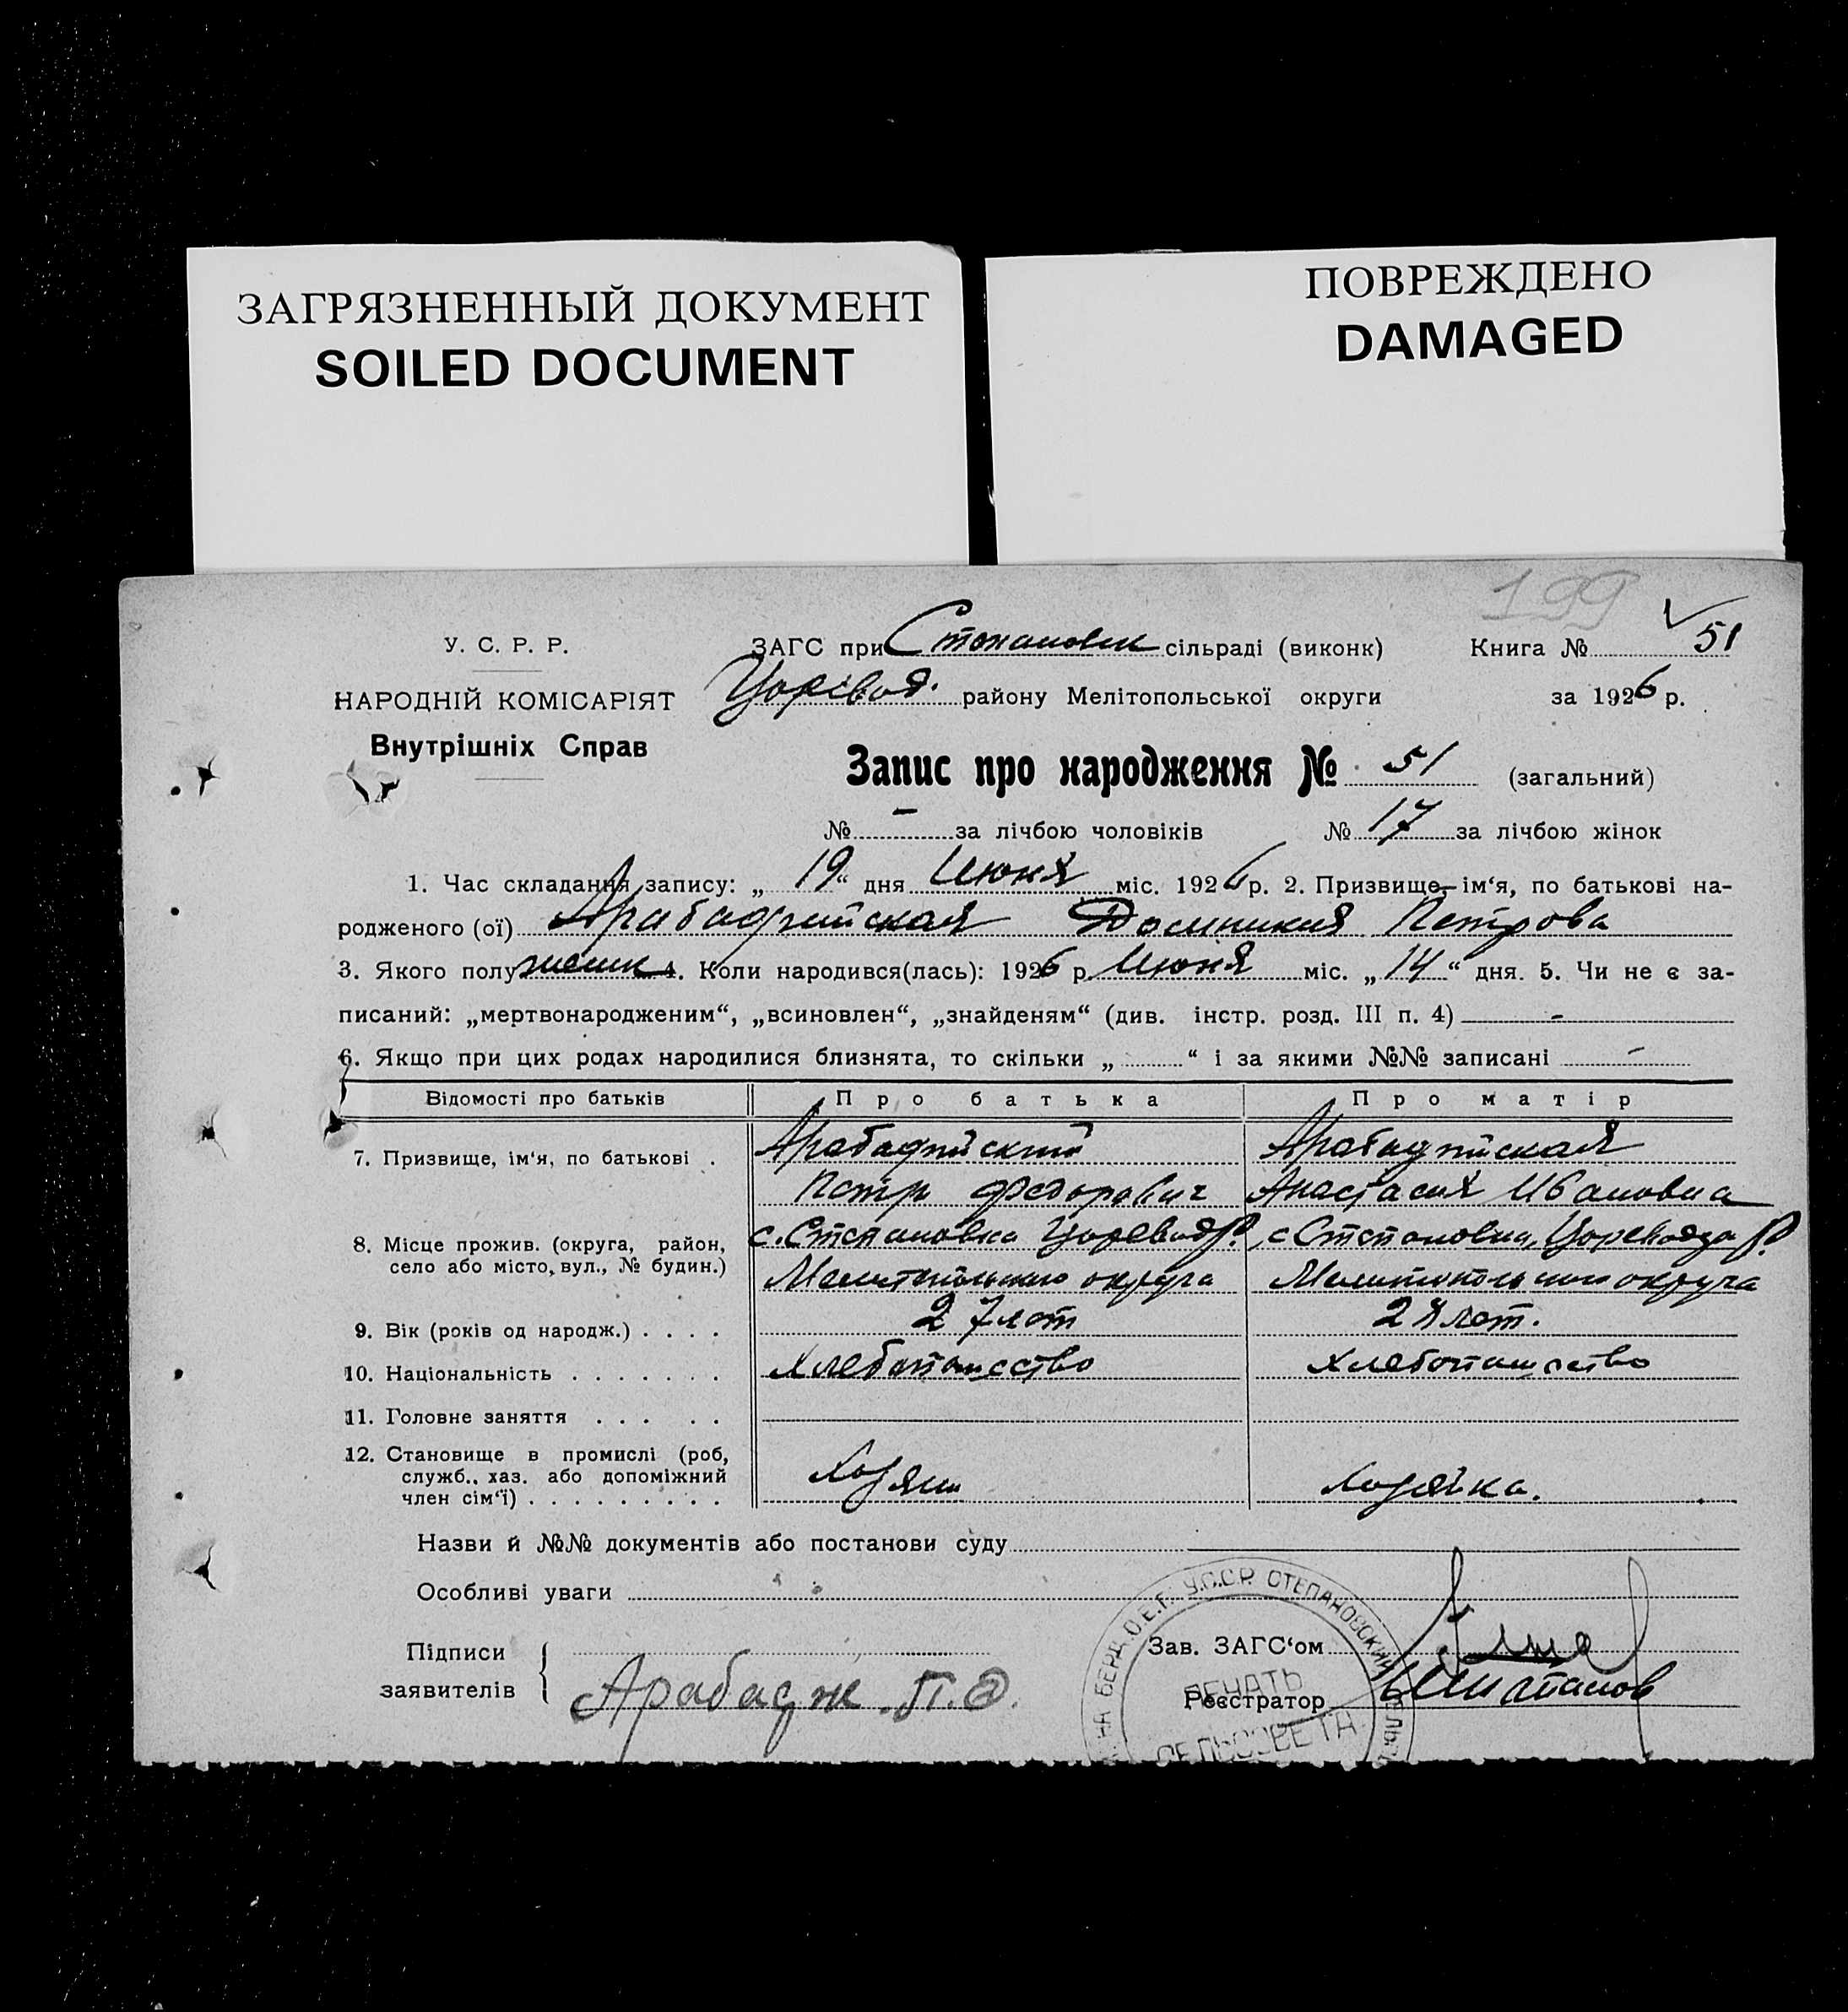 ЗАГРЯЗНЕННЫЙ ДОКУМЕНТ
SOILED DOCUMENT
ПОВРЕЖДЕНО
DAMAGED
199
У. С. Р. Р.
ЗАГС при Степановск сільраді (виконк) Книга № 51
НАРОДНІЙ КОМІСАРІЯТ
Царевод. району Мелітопольської округи за 1926 р.
Внутрішніх Справ
Запис про народження № 51 (загальний)
№ - за лічбою чоловіків № 17 за лічбою жінок
1. Час складання запису: „ 19 “ дня Июня міс. 1926 р. 2. Призвище, ім‘я, по батькові на-
родженого (ої) Арабаджийская Доминикия Петрова
3. Якого полу женск 4. Коли народився(лась): 1926 р. Июня міс. „ 14 “ дня. 5. Чи не є за-
писаний: „мертвонародженим“, „всиновлен“, „знайденям“ (див. інстр. розд. III п. 4) -
6. Якщо при цих родах народилися близнята, то скільки „ “ і за якими №№ записані -
Відомості про батьків Про батька Про матір
7. Призвище, ім‘я, по батькові . Арабаджийский Арабаджийская
Петр Федорович Анастасия Ивановна
8. Місце прожив. (округа, район, с. Степановка Царевод Р. с Степановка, Цареводза Р.
село або місто, вул., № будин.) Мелитопольского округа Мелитопольского округа
9. Вік (років од народж.) . . . . 27 лет лет.
10. Національність . . . . . . . Хлебопашество Хлебопашество
11. Головне заняття . . . . .
12. Становище в промислі (роб,
служб.. хаз. або допоміжний Хозяин Хозяйка.
член сім‘ї) . . . . . . . . .
Назви й №№ документів або постанови суду
Особливі уваги
У.С.С.Р. СТЕПАНОВСКИЙ
Підписи Зав. ЗАГС‘ом
заявителів Арабадж. П. Ф. Реєстратор
ПЕЧАТЬ
СЕЛЬСОВЕТА